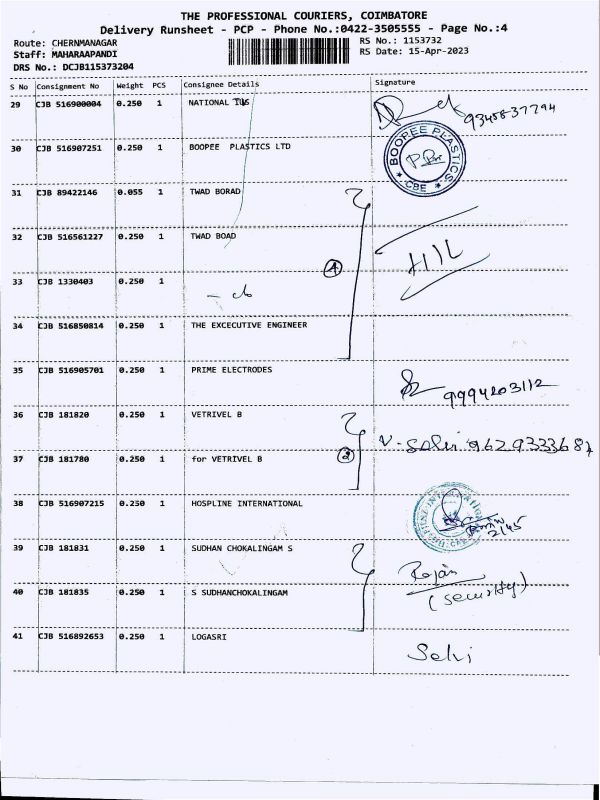 THE PROFESSIONAL COURIERS, COIMBATORE
Delivery Runsheet - PCP - Phone No.:0422-3505555 - Page No.:4
Route: CHERNMANAGAR RS No.: 1153732
Staff: MAHARAAPANDI RS Date: 15-Apr-2023
DRS No.: DCJB115373204
S No Consignment No Weight PCS Consignee Details Signature
29 CJB 516900004 0.250 1 NATIONAL
30 CJB 516907251 0.250 1 BOOPEE PLASTICS LTD
BOOPEE PLASTICS
CBE
31 CJB 89422146 0.055 1 TWAD BORAD
32 CJB 516561227 0.250 1 TWAD BOAD
4
33 CJB 1330403 0.250 1
34 CJB 516850814 0.250 1 THE EXCECUTIVE ENGINEER
35 CJB 516905701 0.250 1 PRIME ELECTRODES
9994203112
36 CJB 181820 0.250 1 VETRIVEL B
2
37 CJB 181780 0.250 1 for VETRIVEL B
38 CJB 516907215 0.250 1 HOSPLINE INTERNATIONAL
39 CJB 181831 0.250 1 SUDHAN CHOKALINGAM S
Rajan
40 CJB 181835 0.250 1 S SUDHANCHOKALINGAM
(security)
41 CJB 516892653 0.250 1 LOGASRI
Selvi